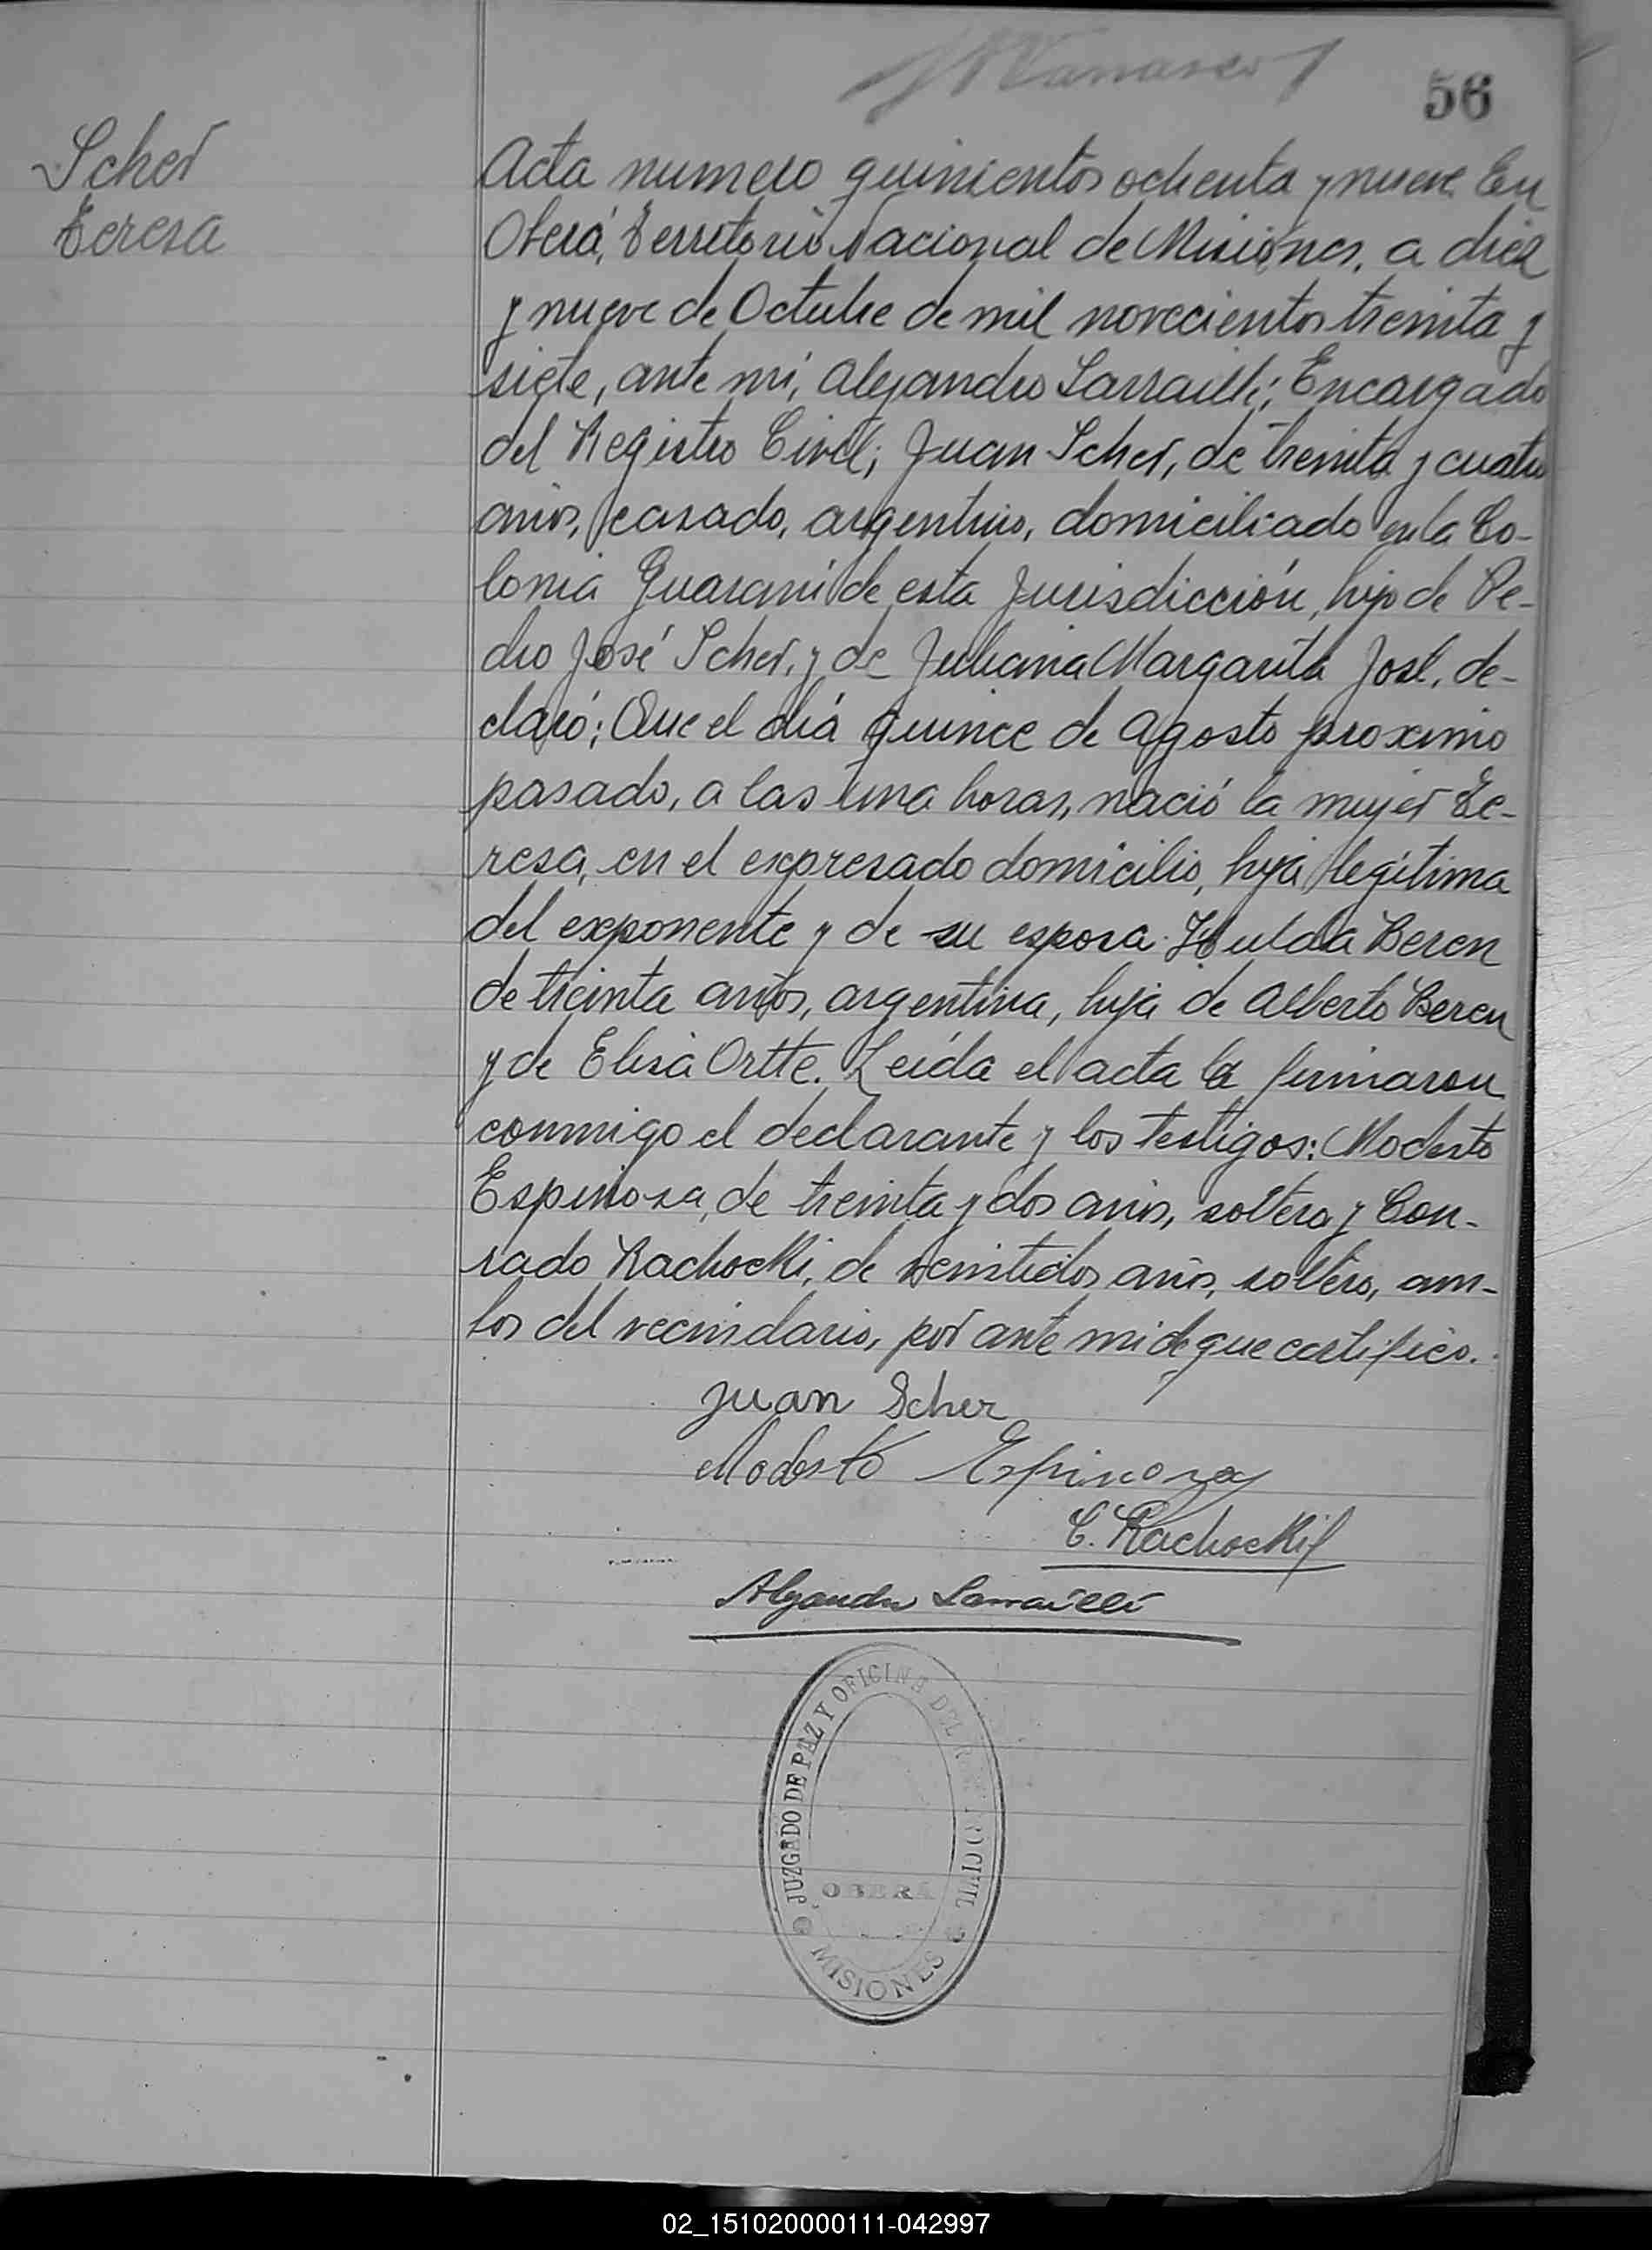 56
Scher
Teresa
Acta numero quinientos ochenta y nueve. En
Oberá, Territorio Nacional de Misiones, a diez
y nueve de Octubre de mil novecientos treinta y
siete, ante mí, Alejandro Larrailli; Encargado
del Registro Civil; Juan Scher, de treinta y cuatro
años, casado, argentino, domiciliado en la Co-
lonia Guaraní de esta Jurisdicción, hijo de Pe-
dro José Scher, y de Juliana Margarita Jost, de-
claró: Que el día quince de Agosto proximo
pasado, a las una horas, nació la mujer Te-
resa, en el expresado domicilio, hija legítima
del exponente y de su esposa Hulda Beren
de treinta años, argentina, hija de Alberto Beren
y de Elisa Ortte. Leída el acta la firmaron
conmigo el declarante y los testigos: Modesto
Espinosa, de treinta y dos años, soltero y Con-
rado Rachocki, de veintidos años, soltero, am-
bos del vecindario, por ante mi de que certifico.
Juan Scher
Modesto Espinoza
C. Rachocki
Alejandro Larrailli
JUZGADO DE PAZ Y OFICINA DEL REGISTRO CIVIL
OBERÁ
MISIONES
02_151020000111-042997